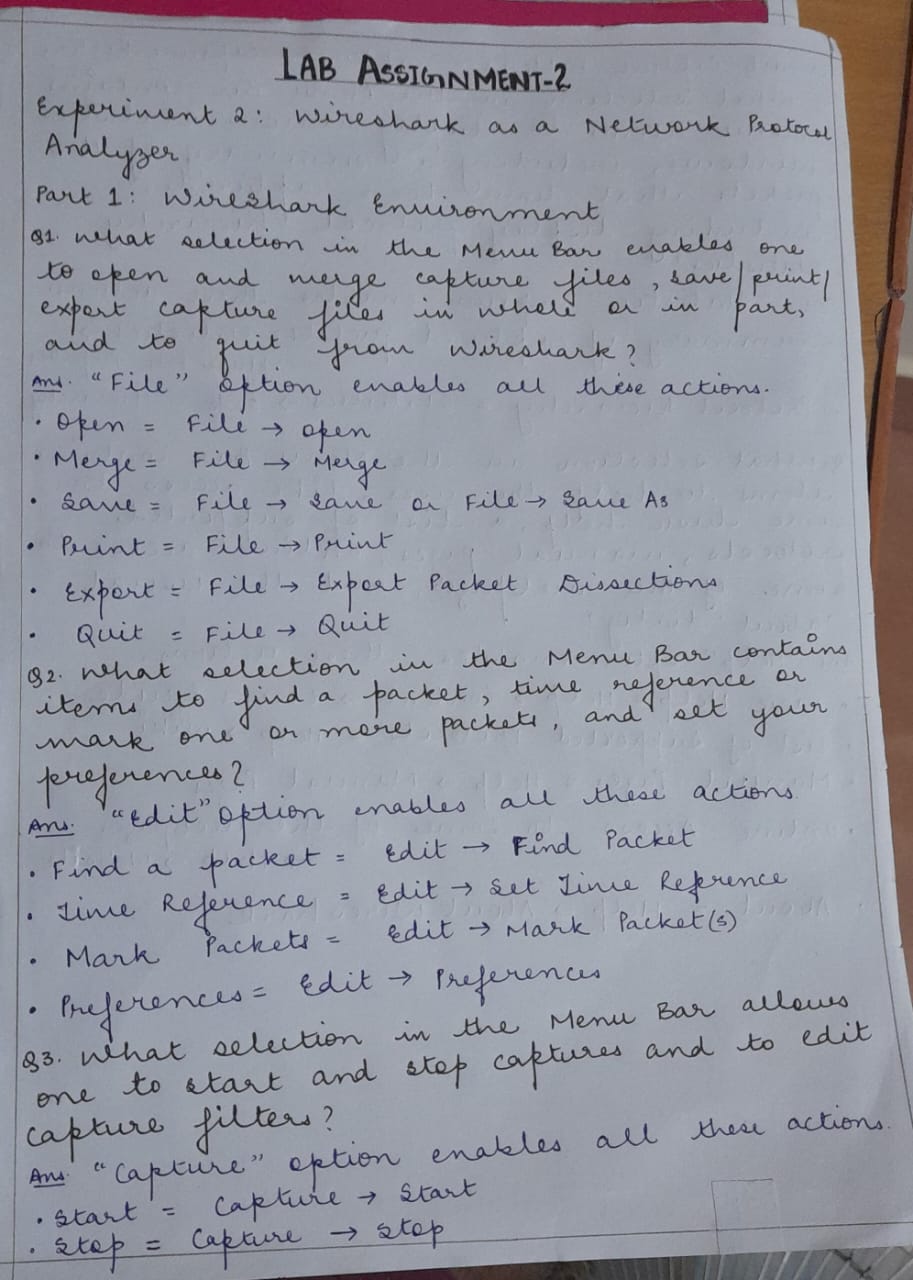 LAB ASSIGNMENT-2
Experiment 2: Wireshark as a Network Protocol
Analyzer
Part 1: Wireshark Environment
Q1. What selection in the Menu Bar enables one
to open and merge capture files, save/print/
export capture files in whole or in part,
and to quit from Wireshark?
Ans. "File" option enables all these actions.
• Open = File → open
• Merge = File → Merge
• Save = File → Save or File → Save As
• Print = File → Print
• Export = File → Export Packet Dissections
• Quit = File → Quit
Q2. What selection in the Menu Bar contains
items to find a packet, time reference or
mark one or more packets, and set your
preferences?
Ans. "Edit" option enables all these actions
• Find a packet = Edit → Find Packet
• Time Reference = Edit → Set Time Reference
• Mark Packets = Edit → Mark Packet(s)
• Preferences = Edit → Preferences
Q3. What selection in the Menu Bar allows
one to start and stop captures and to edit
capture filters?
Ans. "Capture" option enables all these actions.
• Start = Capture → Start
• Stop = Capture → Stop